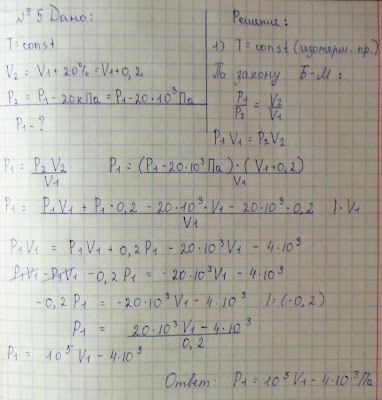 №5 Дано:
T = const
V₂ = V₁+20% = V₁+0,2
P₂ = P₁-20кПа = P₁-20·10³Па
P₁-?
Решение:
1) T = const (изотерм. пр.)
По закону Б-М:
P₁/P₂ = V₂/V₁
P₁V₁ = P₂V₂
P₁ = P₂V₂/V₁ P₁ = (P₁-20·10³Па)·(V₁+0,2)/V₁
P₁ = P₁V₁ + P₁·0,2 - 20·10³·V₁ - 20·10³·0,2/V₁ |·V₁
P₁V₁ = P₁V₁ + 0,2P₁ - 20·10³V₁ - 4·10³
P₁V₁ - P₁V₁ - 0,2P₁ = -20·10³V₁ - 4·10³
-0,2P₁ = -20·10³V₁ - 4·10³ |:(-0,2)
P₁ = 20·10³V₁ - 4·10³/0,2
P₁ = 10⁵V₁ - 4·10³
Ответ: P₁ = 10⁵V₁ - 4·10³Па